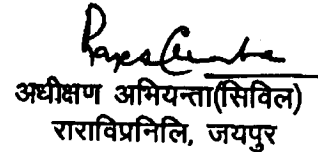 अधीक्षण अभियन्ता(सिविल)
राराविप्रनिलि, जयपुर